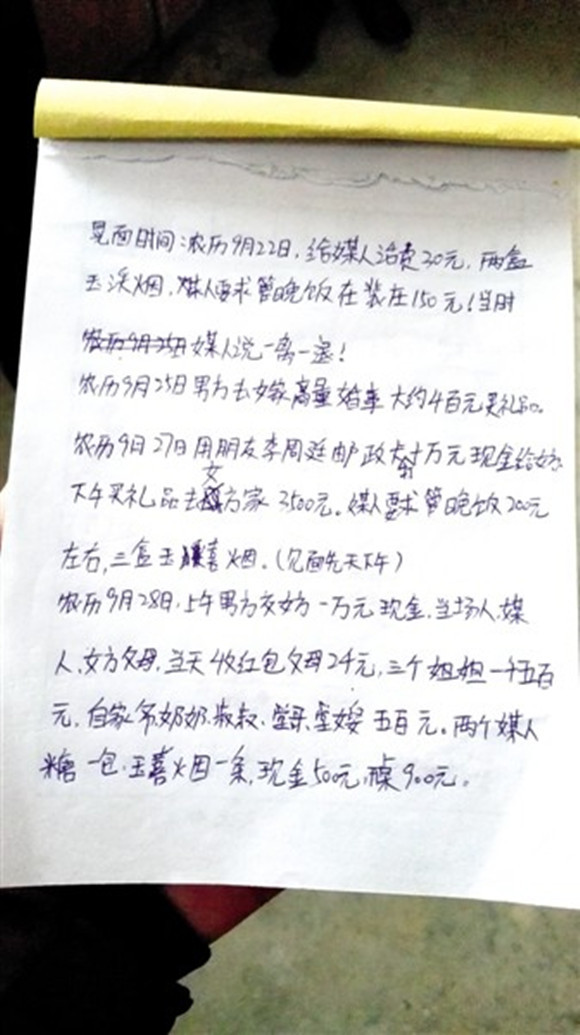 见面时间:农历9月22日,给媒人治费20元,两盒
玉溪烟,媒人要求管晚饭在装在150元!当时
农历9月25日媒人说一离一退!
农历9月25日男方去女家商量婚事大约4百元买礼品。
农历9月27日用朋友李周延邮政卡十万元现金给女方
下午买礼品去女方家3500元。媒人要求管晚饭200元
左右,三盒玉喜烟。(见面先天下午)
农历9月28日,上午男方交女方一万元现金,当场人,媒
人,女方父母,当天收红包父母2千元,三个姐姐一千五百
元,自家爷奶奶,叔叔, 五百元。两个媒人
糖一包,玉喜烟一条,现金500元,桌900元。